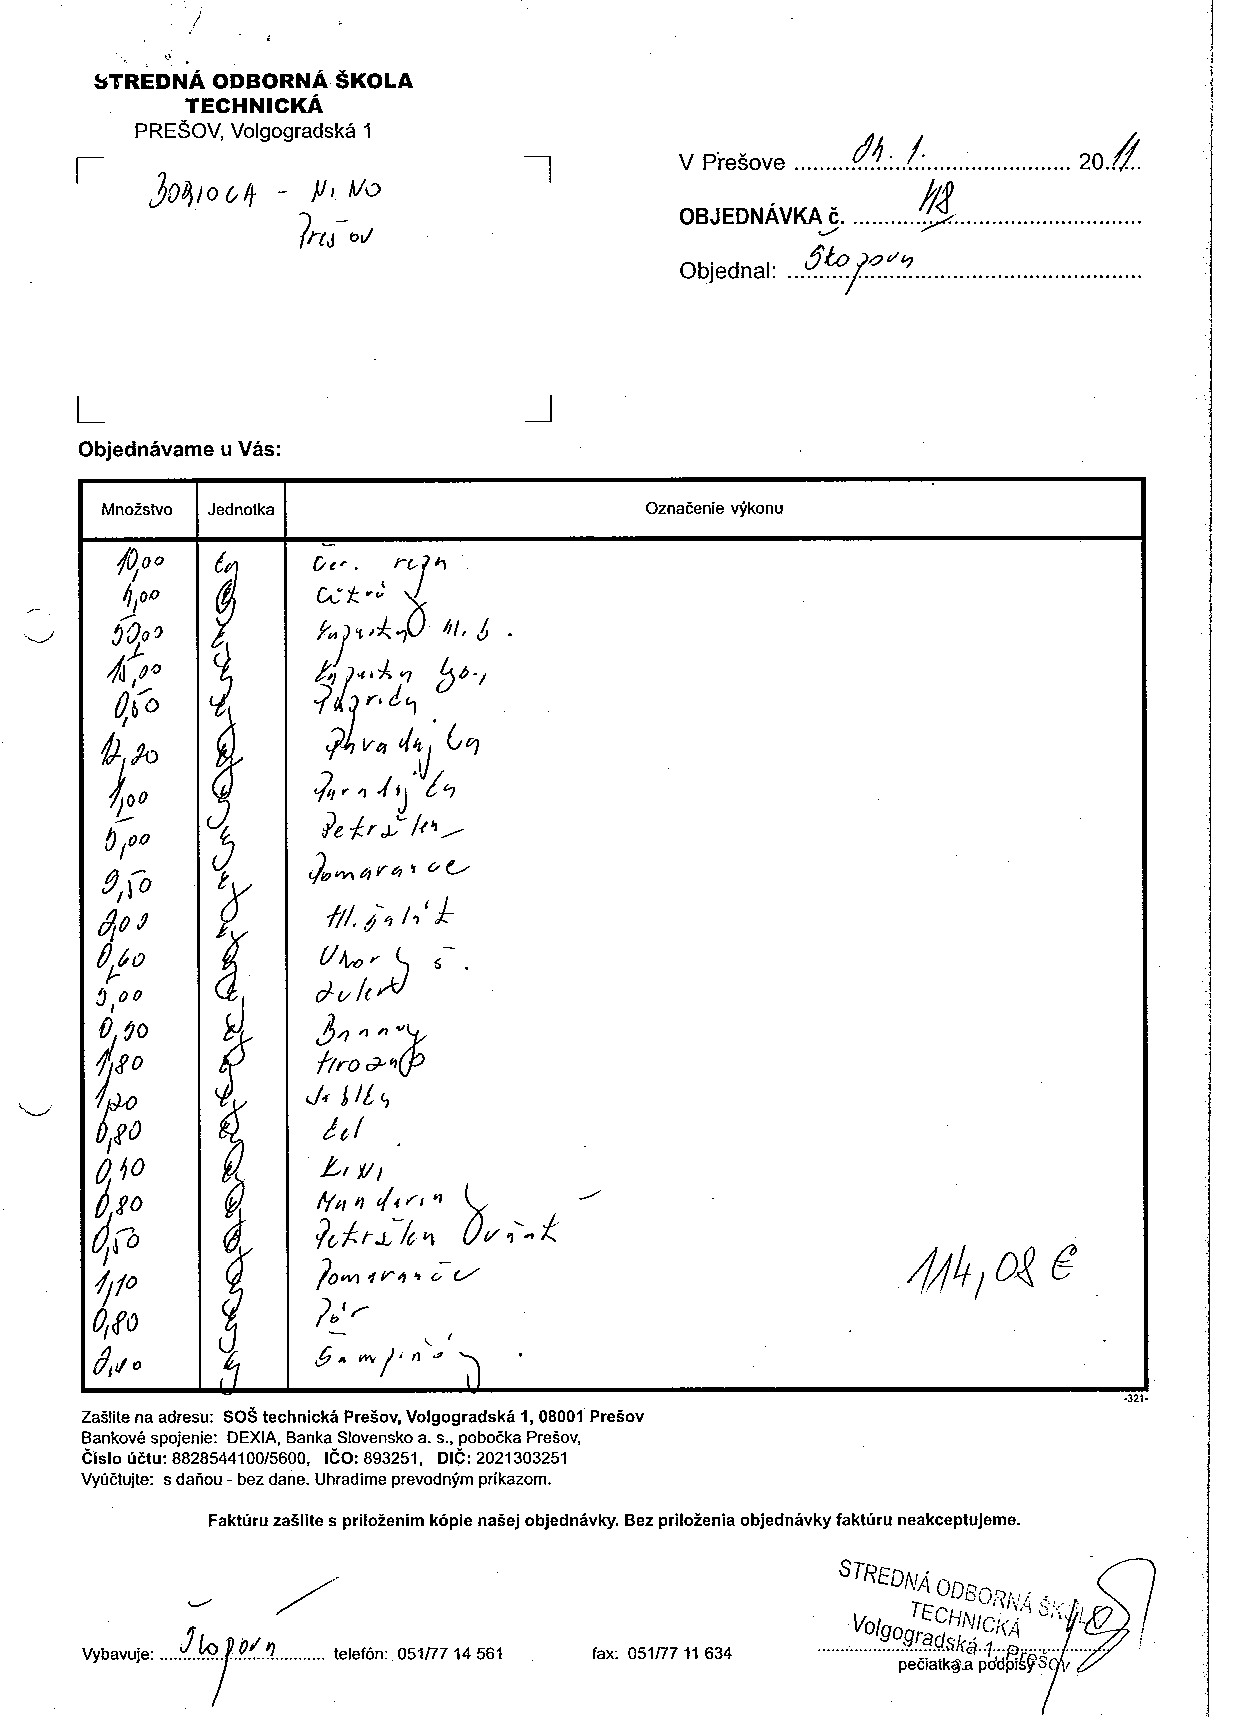 STREDNÁ ODBORNÁ ŠKOLA
TECHNICKÁ
PREŠOV, Volgogradská 1
V Prešove 2011
- NINO
Prešov
OBJEDNÁVKA č.
Objednal: Štopová
Objednávame u Vás:
Množstvo Jednotka Označenie výkonu
10,00 kg
kg Citróny
kg Kapusta hl. b.
15,00 kg Kapusta
0,50 kg Papriky
kg Paradajky
1,00 kg Paradajky
5,00 kg Petržlen
9,50 kg Pomaranče
kg Hl. šalát
0,60 kg Uhorky š.
5,00 kg Zeler
kg Banány
1,80 kg Hrozno
1,20 kg Jablká
0,80 kg Kel
kg Kiwi
0,80 kg Mandarínky
0,50 kg Petržlen
1,10 kg Pomaranče
0,80 kg Pór
kg Šampiňóny
114,08 €
-321-
Zašlite na adresu: SOŠ technická Prešov, Volgogradská 1, 08001 Prešov
Bankové spojenie: DEXIA, Banka Slovensko a. s., pobočka Prešov,
Číslo účtu: 8828544100/5600, IČO: 893251, DIČ: 2021303251
Vyúčtujte: s daňou - bez dane. Uhradíme prevodným príkazom.
Faktúru zašlite s priložením kópie našej objednávky. Bez priloženia objednávky faktúru neakceptujeme.
STREDNÁ ODBORNÁ ŠKOLA
TECHNICKÁ
Volgogradská 1, Prešov
Vybavuje: Štopová telefón: 051/77 14 561 fax: 051/77 11 634
pečiatka a podpisy